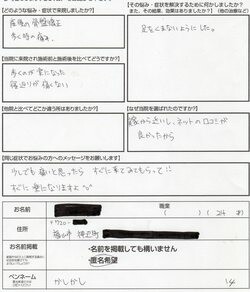 【どのような悩み・症状で来院しましたか?】
産後の骨盤矯正
歩く時の痛み
【その悩み・症状を解決するために何かしましたか?
また、その結果、効果はありましたか?】(他の治療など)
足をくまないようにした。
【当院に来院され施術前と施術後を比べてどうですか?】
歩くのが楽になった
寝返りが痛くない
【他院と比べてどこが違う所はありましたか?】
【なぜ当院を選ばれたのですか?】
家から近いし、ネットの口コミが
良かったから
【同じ症状でお悩みの方へのメッセージをお願いします】
少しでも痛いと思ったら すぐに来てみてもらって!!
すぐに楽になりますよ
お名前
職業
住所
〒720-
福山市
お名前掲載
・名前を掲載しても構いません
・匿名希望
ペンネーム
かしかし